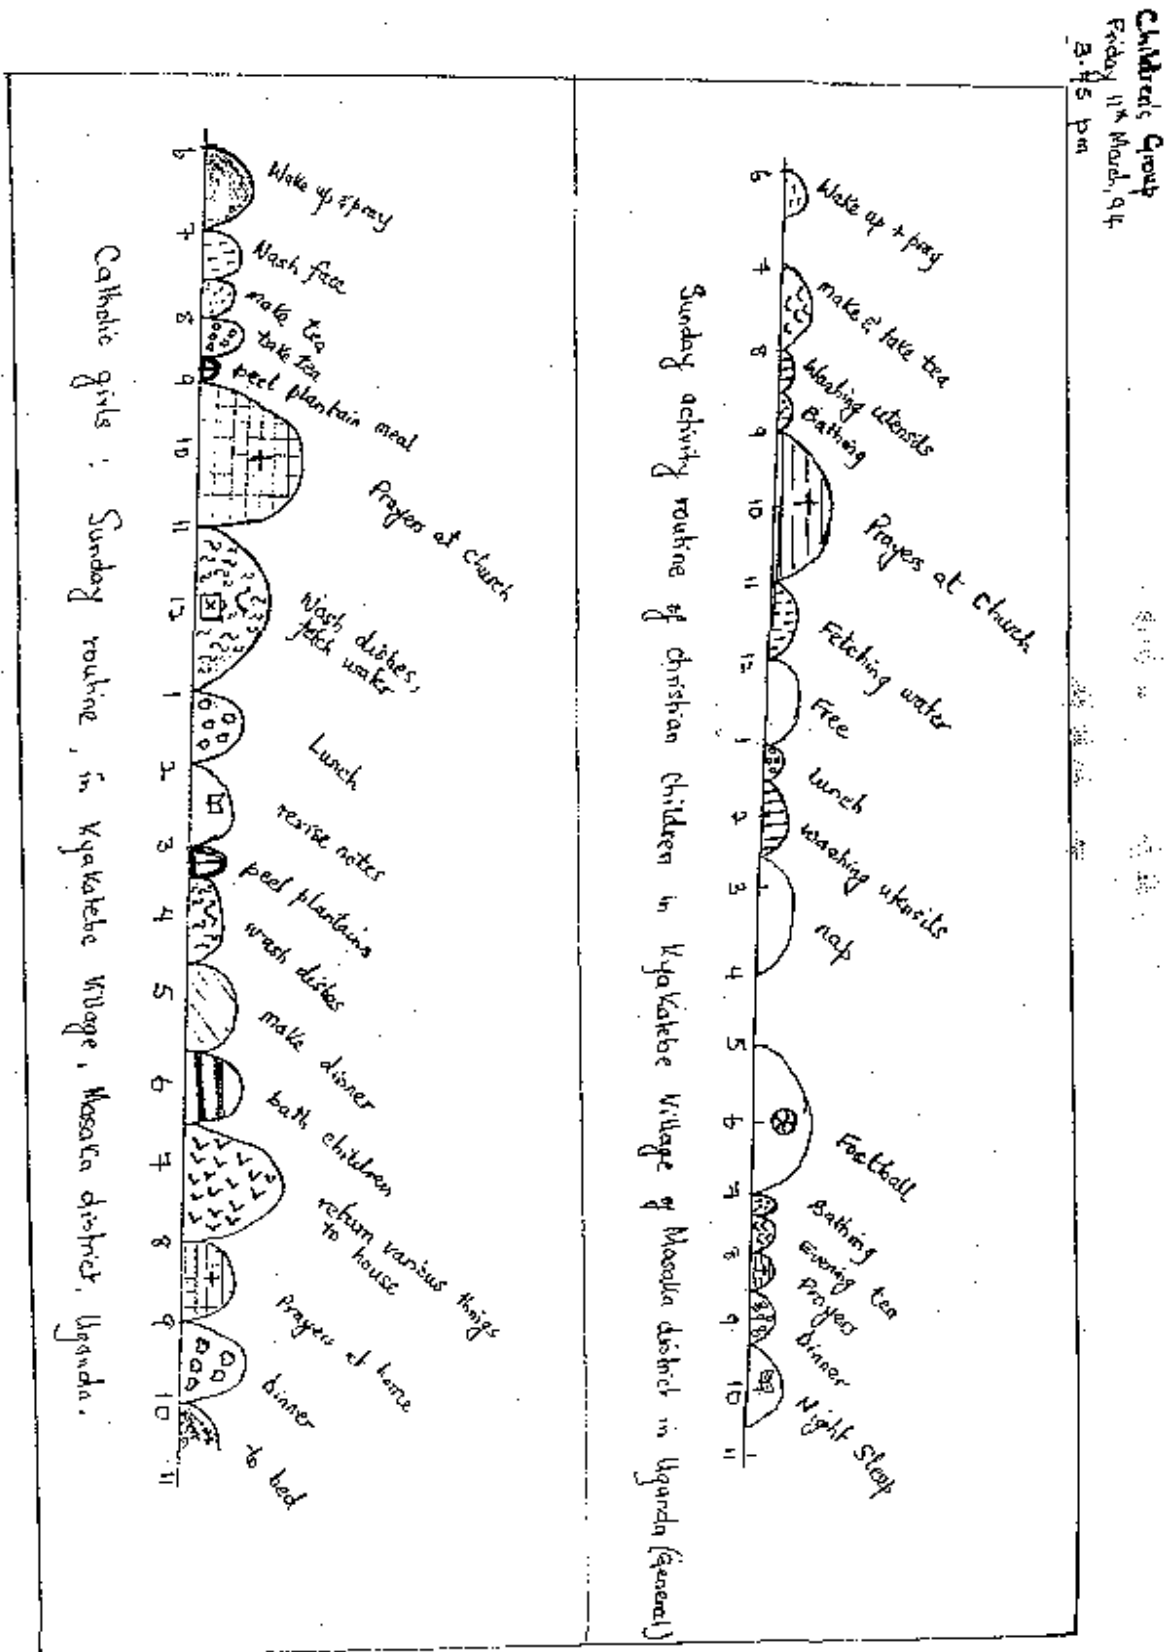 Children's Group
Friday 11th March, 94
3.45 pm
Wake up + pray
make & take tea
Washing utensils
Bathing
Prayers at church
Fetching water
Free
Lunch
washing utensils
nap
Football
Bathing
Evening tea
Prayers
Dinner
Night Sleep
6 7 8 9 10 11 12 1 2 3 4 5 6 7 8 9 10 11
Sunday activity routine of christian children in Kyakatebe Village of Masaka district in Uganda (General)
Wake up & pray
Wash face
make tea
take tea
peel plantain meal
Prayers at church
Wash dishes,
fetch water
Lunch
revise notes
peel plantains
wash dishes
make dinner
bath children
return various things
to house
Prayers at home
Dinner
to bed
6 7 8 9 10 11 12 1 2 3 4 5 6 7 8 9 10 11
Catholic girls : Sunday routine, in Kyakatebe Village, Masaka district, Uganda.